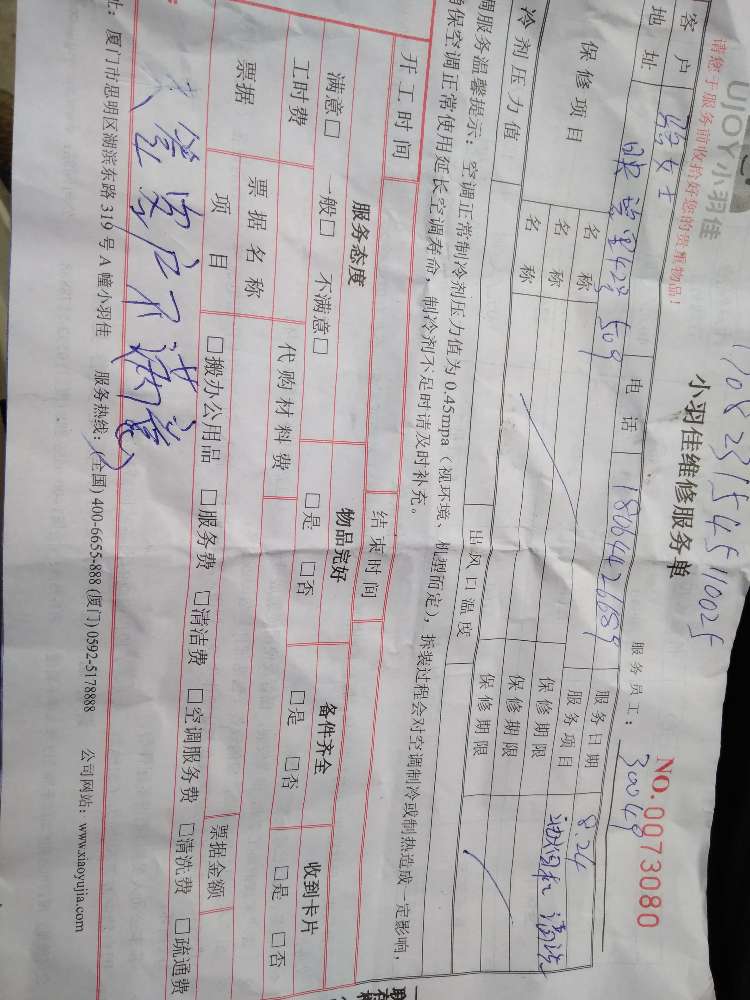 UJOY小羽佳
1708231545110025
小羽佳维修服务单
NO.0073080
请您于服务前收拾好您的贵重物品!
服务员工: 30049
客户 张女士 电话 18064421689 服务日期 8.24
地址 509 服务项目 油烟机清洗
保修项目 名称 保修期限
名称 保修期限
名称 保修期限
冷剂压力值 出风口温度
调服务温馨提示:空调正常制冷剂压力值为0.45mpa(视环境、机型而定),拆装过程会对空调制冷或制热造成一定影响,
确保空调正常使用延长空调寿命,制冷剂不足时请及时补充。
开工时间 结束时间
服务态度 物品完好 备件齐全 收到卡片
满意□ 一般□ 不满意□ □是 □否 □是 □否 □是 □否
工时费 代购材料费
票据 票据名称 票据金额
项目 □搬办公用品 □服务费 □清洁费 □空调服务费 □清洗费 □疏通费
签 客户不满意
址:厦门市思明区湖滨东路319号A幢小羽佳 服务热线:(全国)400-6655-888 (厦门)0592-5178888 公司网站:www.xiaoyujia.com